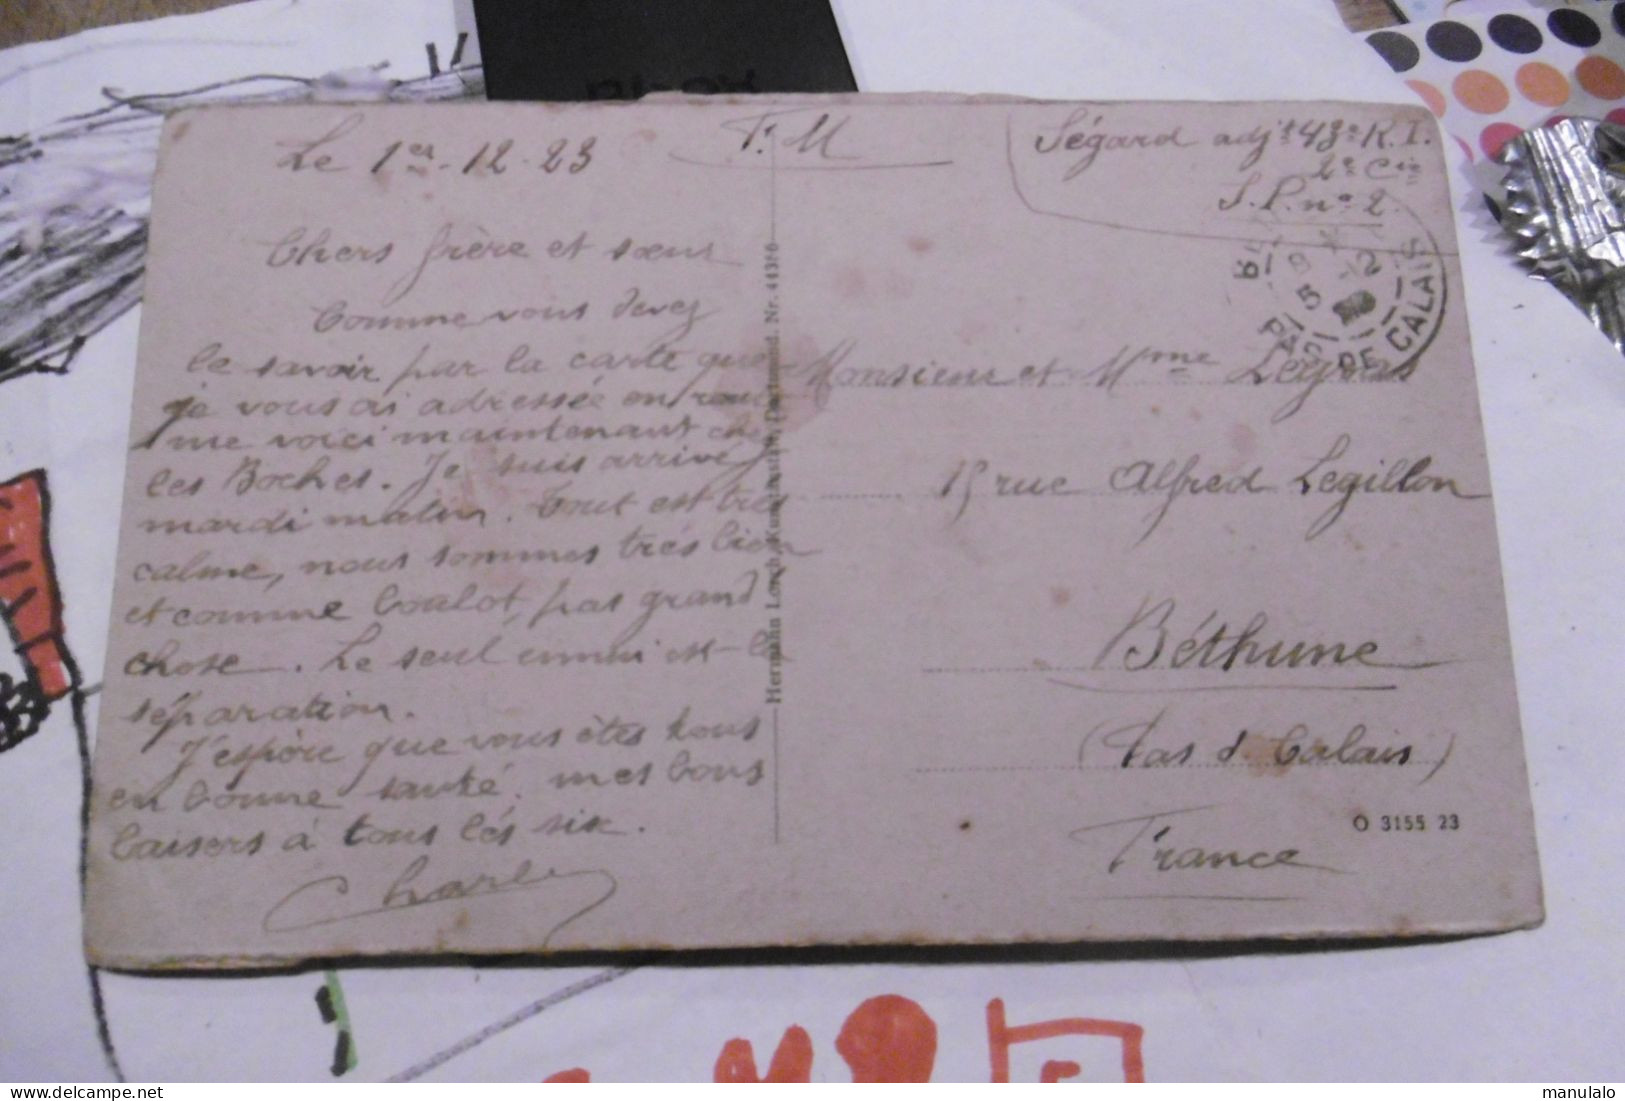 Le 1er-12-23
Chers frère et sœur
Comme vous devez
le savoir par la carte que
je vous ai adressée en route
me voici maintenant chez
les Boches. Je suis arrivé
mardi matin. Tout est très
calme, nous sommes très bien
et comme boulot, pas grand
chose. Le seul ennui est la
séparation.
J'espère que vous êtes tous
en bonne santé. mes bons
baisers à tous les six.
Charles
F. M
Ségard adjt 43e R.I.
2e Cie
S.P. no 2
PAS DE CALAIS
Monsieur et Mme
15 rue Alfred Legillon
Béthune
(Pas d. Calais)
France
O 3155 23
Hermann Lorch, Kunstanstalt, Dortmund. Nr. 44376
manulalo